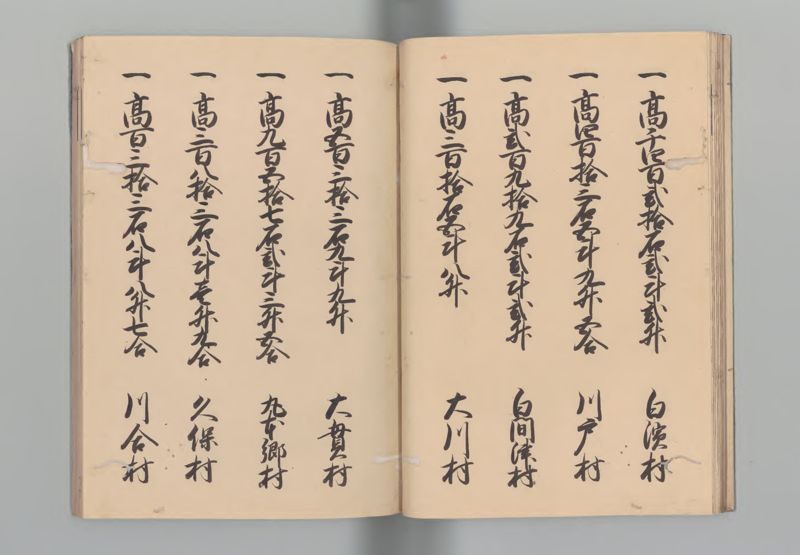 一 高千四百弐拾石弐斗弐升 白濱村
一 高四百拾三石五斗九升五合 川戸村
一 高弐百九拾九石弐斗弐升 白間津村
一 高三百拾石五斗八升 大川村
一 高五百三拾三石九斗九升 大貫村
一 高九百五拾七石弐斗三升五合 丸本郷村
一 高三百八拾三石八斗壱升九合 久保村
一 高百三拾三石八斗八升七合 川合村